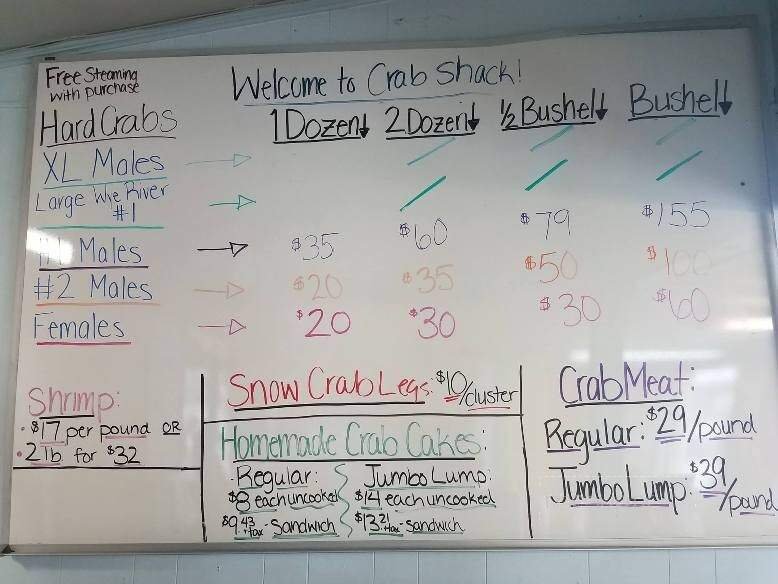 Free Steaming
with purchase
Welcome to Crab Shack!
Hard Crabs 1 Dozen↓ 2 Dozen↓ ½ Bushel↓ Bushel↓
XL Males → / / /
Large Wye River
#1 → / / /
#1 Males → $35 $60 $79 $155
#2 Males → $20 $35 $50 $100
Females → $20 $30 $30 $60
Shrimp:
• $17 per pound OR
• 2 lb for $32
Snow Crab Legs: $10/cluster
Homemade Crab Cakes:
Regular:
$8 each uncooked
$9.43 +tax - Sandwich
Jumbo Lump:
$14 each uncooked
$13.21 +tax - Sandwich
Crab Meat:
Regular: $29/pound
Jumbo Lump: $39/pound